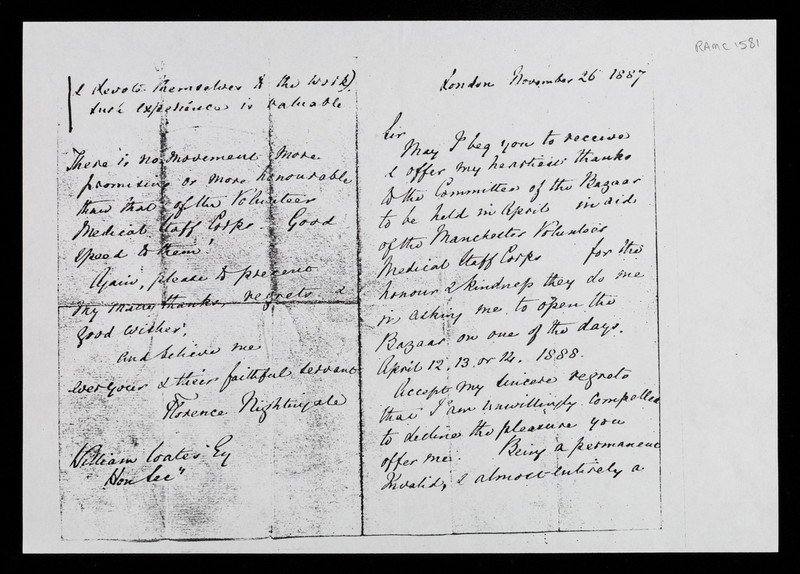 RAMC 1581
London November 26 1887
Sir
May I beg you to receive
& offer my heartiest thanks
to the Committee of the Bazaar
to be held in April in aid
of the Manchester Volunteer
Medical Staff Corps for the
honour & kindness they do me
in asking me to open the
Bazaar on one of the days.
April 12, 13, or 14. 1888.
Accept my sincere regrets
that I am unwillingly compelled
to decline the pleasure you
offer me. Being a permanent
Invalid, & almost entirely a
& devote themselves to the work)
such experience is valuable
There is no movement more
promising or more honourable
than that of the Volunteer
Medical Staff Corps - Good
speed to them!
Again, please to present
my many thanks, regrets &
good wishes,
And believe me
ever your & their faithful servant
Florence Nightingale
William Coates Esq
Hon Sec"